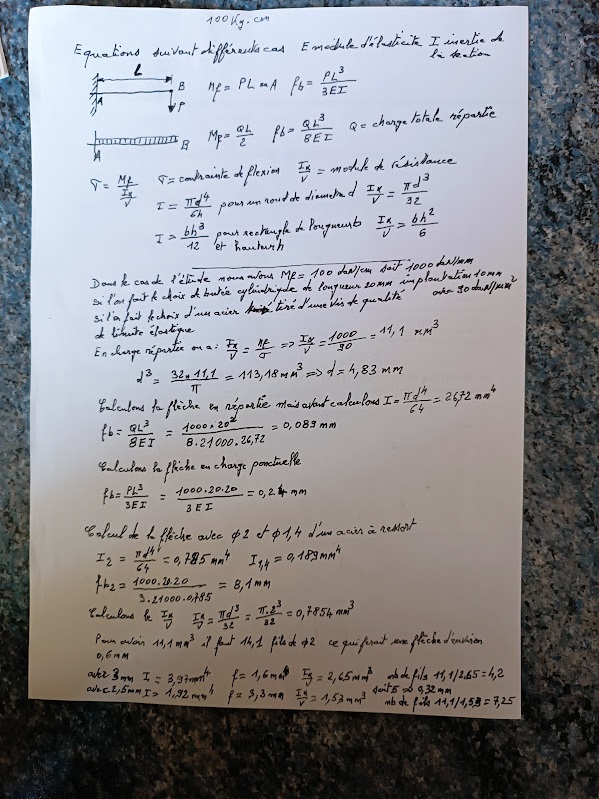 100 Kg.cm
Equations suivant différents cas E module d'élasticité I inertie de
la section
L
A B P
Mf = PL en A fb = PL³/3EI
A B
Mf = QL/2 fb = QL³/8EI Q = charge totale répartie
σ = Mf/(Ix/V) σ = contrainte de flexion Ix/V = module de résistance
I = πd⁴/64 pour un rond de diametre d Ix/V = πd³/32
I = bh³/12 pour rectangle de longueur b et hauteur h Ix/V = bh²/6
Dans le cas de l'étude nous avons Mf = 100 daN/cm soit 1000 daN/mm
Si l'on fait le choix de butée cylindrique de longueur 20mm implantation 10mm
Si l'on fait le choix d'un acier tiré d'une vis de qualité avec 90 daN/mm²
de limite élastique
En charge répartie on a : Ix/V = Mf/σ => Ix/V = 1000/90 = 11,1 mm³
d³ = 32 × 11,1/π = 113,18 mm³ => d = 4,83 mm
Calculons la flèche en répartie mais avant calculons I = πd⁴/64 = 26,72 mm⁴
fb = QL³/8EI = 1000.20²/8.21000.26,72 = 0,089 mm
Calculons la flèche en charge ponctuelle
fb = PL³/3EI = 1000.20.20/3EI = 0,24 mm
Calcul de la flèche avec φ2 et φ1,4 d'un acier à ressort
I₂ = πd⁴/64 = 0,785 mm⁴ I₁,₄ = 0,189 mm⁴
fb₂ = 1000.20.20/3.21000.0,785 = 8,1 mm
Calculons le Ix/V Ix/V = πd³/32 = π.2³/32 = 0,7854 mm³
Pour avoir 11,1 mm³ il faut 14,1 fils de φ2 ce qui ferait une flèche d'environ
0,6 mm
avec 3mm I = 3,97 mm⁴ f = 1,6 mm Ix/V = 2,65 mm³ nb de fils 11,1/2.65 = 4,2
soit 5 => 0,32 mm
avec 2,5mm I = 1,92 mm⁴ f = 3,3 mm Ix/V = 1,53 mm³ nb de fils 11,1/1,53 = 7,25